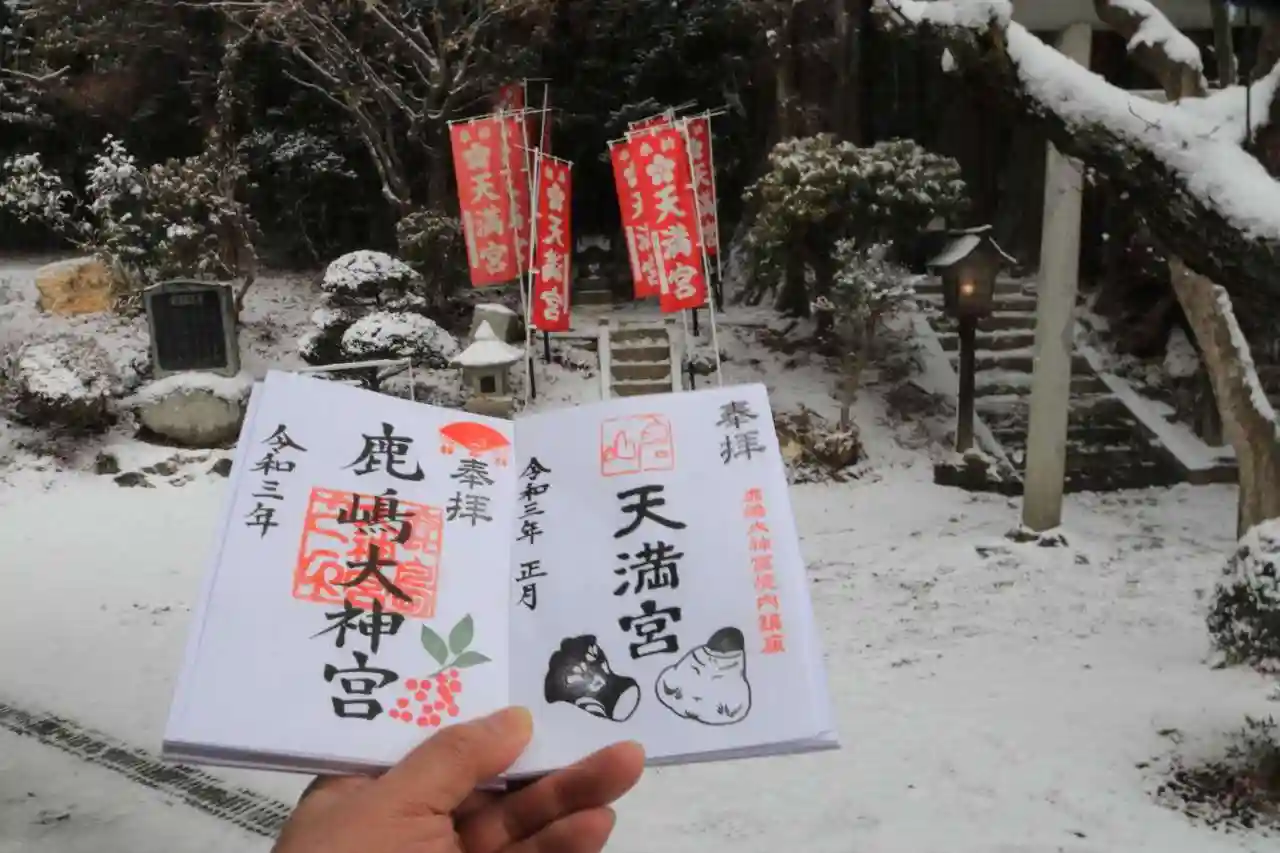 天満宮
天満宮
天満宮
天満宮
奉拝
鹿嶋大神宮
令和三年
奉拝
天満宮
令和三年 正月